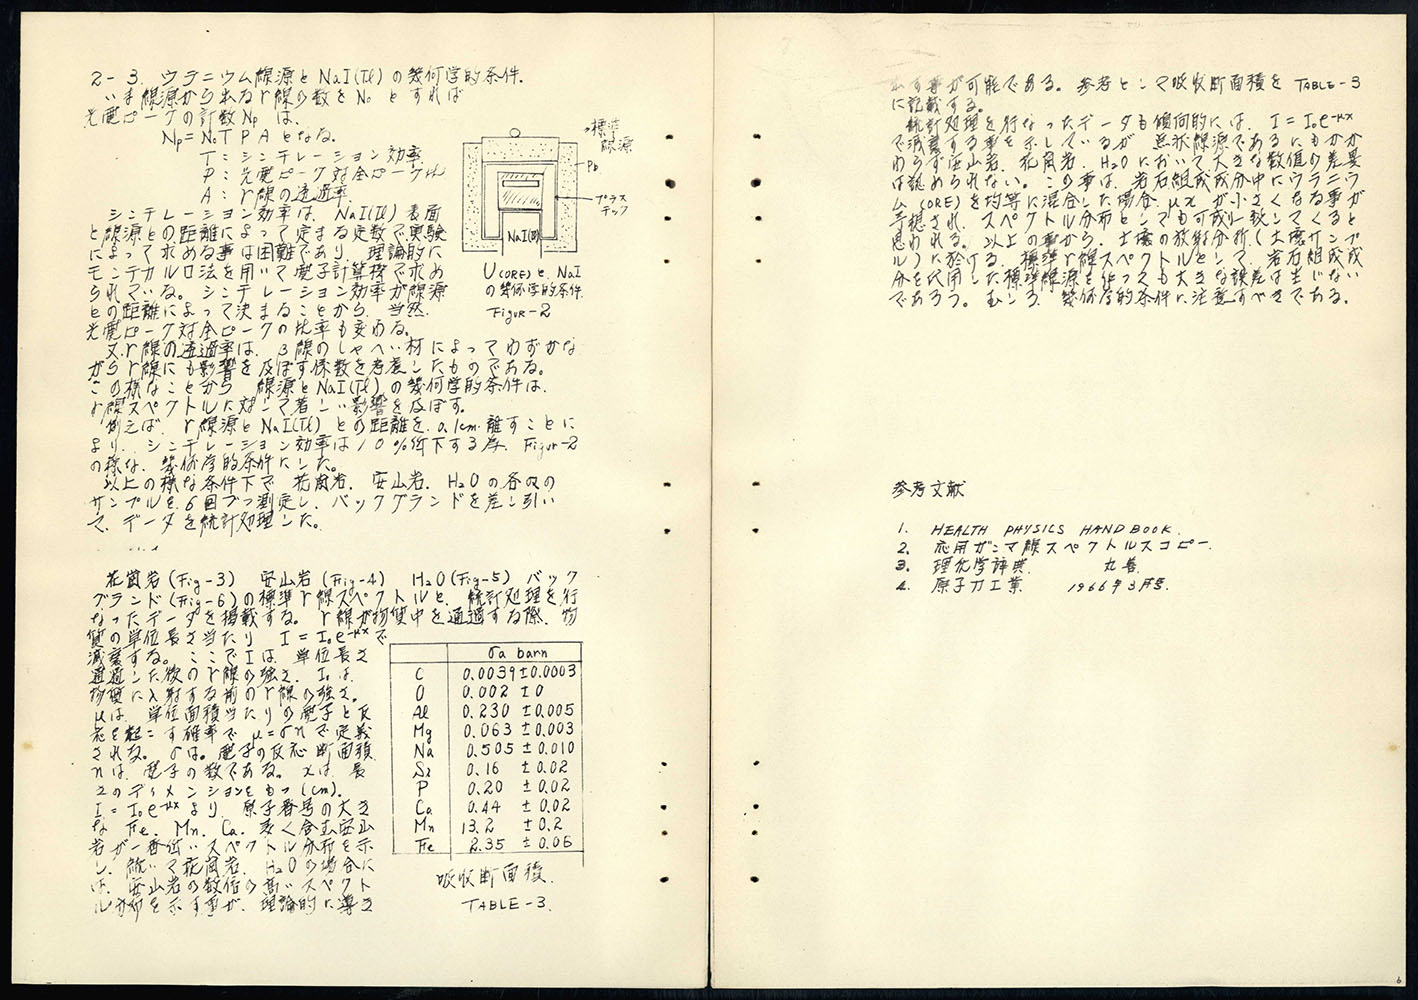 2-3. ウラニウム線源とNaI(Tl)の幾何学的条件.
いま線源から出るγ線の数をN₀とすれば
光電ピークの計数Npは、
Np=N₀TPAとなる.
T：シンチレーション効率.
P：光電ピーク対全ピーク比
A：γ線の透過率.
シンチレーション効率は、NaI(Tl)表面
と線源との距離によって定まる定数で、実験
によって求める事は困難であり、理論的に
モンテカルロ法を用いて電子計算機で求め
られている。シンチレーション効率が線源
との距離によって決まることから、当然.
光電ピーク対全ピークの比率も変わる。
又、γ線の透過率は、β線のしゃへい材によってわずかな
がらγ線にも影響を及ぼす係数を考慮したものである。
この様なことから 線源とNaI(Tl)の幾何学的条件は.
γ線スペクトルに対して著しい影響を及ぼす。
例えば、γ線源とNaI(Tl)との距離を.0.1cm.離すことに
より、シンチレーション効率は10%低下する為. Figur-2
の様な、幾何学的条件にした。
以上の様な条件下で 花崗岩. 安山岩. H₂Oの各々の
サンプルを6回づつ測定し、バックグランドを差し引い
て、データを統計処理した。
標準
線源
Pb
プラス
チック
NaI(Tl)
U(ORE)と NaI
の幾何学的条件
Figur-2
花崗岩(Fig-3) 安山岩(Fig-4) H₂O(Fig-5) バック
グランド(Fig-6)の標準γ線スペクトルと、統計処理を行
なったデータを掲載する。γ線が物質中を通過する際、物
質の単位長さ当たり I=I₀e⁻μx で
減衰する。ここでIは、単位長さ
通過した後のγ線の強さ. I₀は.
物質に入射する前のγ線の強さ。
μは、単位面積当たりの電子と反
応を起こす確率で μ=σnで定義
される。σは。電子の反応断面積
nは、電子の数である。xは、長
さのディメンションをもつ(cm).
I=I₀e⁻μxより、原子番号の大き
な Fe. Mn. Ca. 多く含む安山
岩が一番低いスペクトル分布を示
し、続いて花崗岩. H₂Oの場合に
は、安山岩の数倍の高いスペクト
ル分布を示す事が、理論的に導き
σa barn
C 0.0039±0.0003
O 0.002 ±0
Al 0.230 ±0.005
Mg 0.063 ±0.003
Na 0.505 ±0.010
Si 0.16 ±0.02
P 0.20 ±0.02
Ca 0.44 ±0.02
Mn 13.2 ±0.2
Fe 2.35 ±0.06
吸収断面積.
TABLE-3.
出す事が可能である。参考として吸収断面積を TABLE-3
に記載する。
統計処理を行なったデータも傾向的には、I=I₀e⁻μx
で減衰する事を示しているが 面状線源であるにもかか
わらず安山岩. 花崗岩. H₂Oにおいて大きな数値の差異
は認められない。この事は、岩石組成成分中にウラニウ
ム(ORE)を均等に混合した場合、μxが小さくなる事が
予想され、スペクトル分布としても可成り一致してくると
思われる。以上の事から、土壌の放射分析(土壌サンプ
ル)に於ける、標準γ線スペクトルとして、岩石組成成
分を代用した標準線源を作っても大きな誤差は生じない
であろう。むしろ、幾何学的条件に注意すべきである。
参考文献
1. HEALTH PHYSICS HANDBOOK.
2. 応用ガンマ線スペクトルスコピー.
3. 理化学辞典 丸善.
4. 原子力工業 1966年3月号.
6